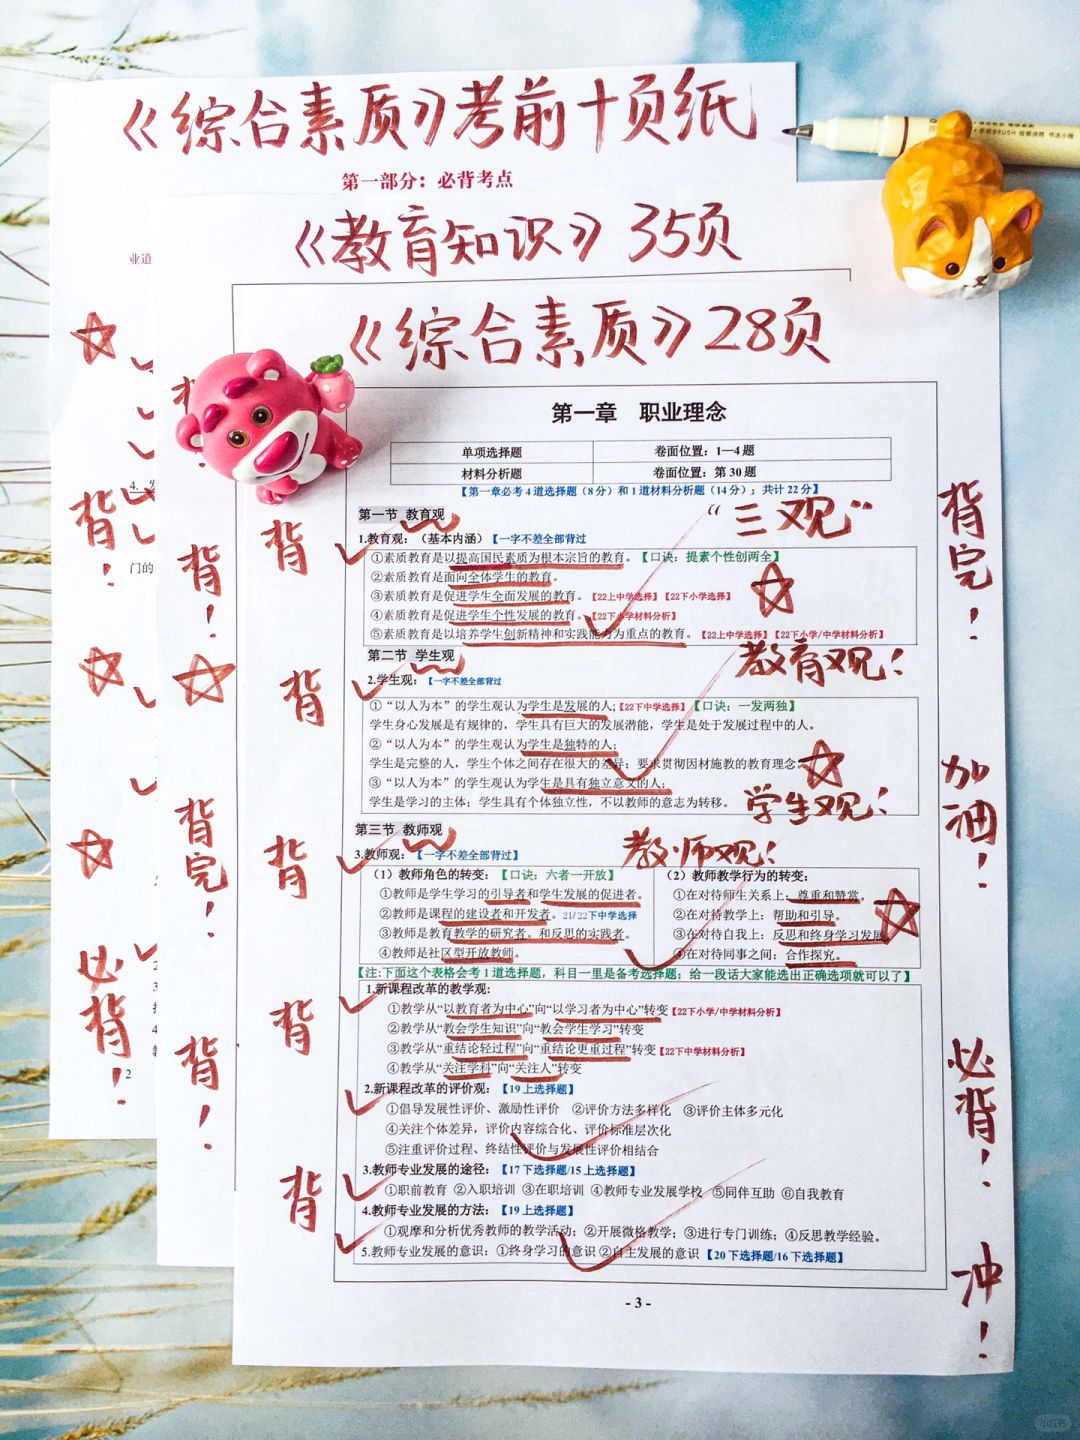 《综合素质》考前十页纸
第一部分：必背考点
业道
4.
门的
2
《教育知识》35页
《综合素质》28页
第一章 职业理念
单项选择题 卷面位置：1—4题
材料分析题 卷面位置：第30题
【第一章必考4道选择题（8分）和1道材料分析题（14分）；共计22分】
“三观”
第一节 教育观
1.教育观：（基本内涵）【一字不差全部背过
①素质教育是以提高国民素质为根本宗旨的教育。【口诀：提素个性创两全】
②素质教育是面向全体学生的教育。
③素质教育是促进学生全面发展的教育。【22上中学选择】【22下小学选择】
④素质教育是促进学生个性发展的教育。【22下小学材料分析】
⑤素质教育是以培养学生创新精神和实践能力为重点的教育。【22上中学选择】【22下小学/中学材料分析】
教育观！
第二节 学生观
2.学生观：【一字不差全部背过
①“以人为本”的学生观认为学生是发展的人;【22下中学选择】【口诀：一发两独】
学生身心发展是有规律的，学生具有巨大的发展潜能，学生是处于发展过程中的人。
②“以人为本”的学生观认为学生是独特的人;
学生是完整的人，学生个体之间存在很大的差异；要求贯彻因材施教的教育理念
③“以人为本”的学生观认为学生是具有独立意义的人;
学生是学习的主体；学生具有个体独立性，不以教师的意志为转移。
学生观！
第三节 教师观
教师观！
3.教师观：【一字不差全部背过】
（1）教师角色的转变：【口诀：六者一开放】
①教师是学生学习的引导者和学生发展的促进者。
②教师是课程的建设者和开发者。21/22下中学选择
③教师是教育教学的研究者。和反思的实践者。
④教师是社区型开放教师。
（2）教师教学行为的转变：
①在对待师生关系上：尊重和赞赏。
②在对待教学上：帮助和引导。
③在对待自我上：反思和终身学习发展
④在对待同事之间：合作探究。
【注:下面这个表格会考1道选择题，科目一里是备考选择题；给一段话大家能选出正确选项就可以了】
1.新课程改革的教学观:
①教学从“以教育者为中心”向“以学习者为中心”转变【22下小学/中学材料分析】
②教学从“教会学生知识”向“教会学生学习”转变
③教学从“重结论轻过程”向“重结论更重过程”转变【22下中学材料分析】
④教学从“关注学科”向“关注人”转变
2.新课程改革的评价观：【19上选择题】
①倡导发展性评价、激励性评价 ②评价方法多样化 ③评价主体多元化
④关注个体差异，评价内容综合化、评价标准层次化
⑤注重评价过程、终结性评价与发展性评价相结合
3.教师专业发展的途径：【17下选择题/15上选择题】
①职前教育 ②入职培训 ③在职培训 ④教师专业发展学校 ⑤同伴互助 ⑥自我教育
4.教师专业发展的方法：【19上选择题】
①观摩和分析优秀教师的教学活动；②开展微格教学；③进行专门训练；④反思教学经验。
5.教师专业发展的意识：①终身学习的意识 ②自主发展的意识【20下选择题/16下选择题】
- 3 -
背！
必背！
背！
背完！
背！
背
背
背
背
背
背完！
加油！
必背！
冲！
小红书